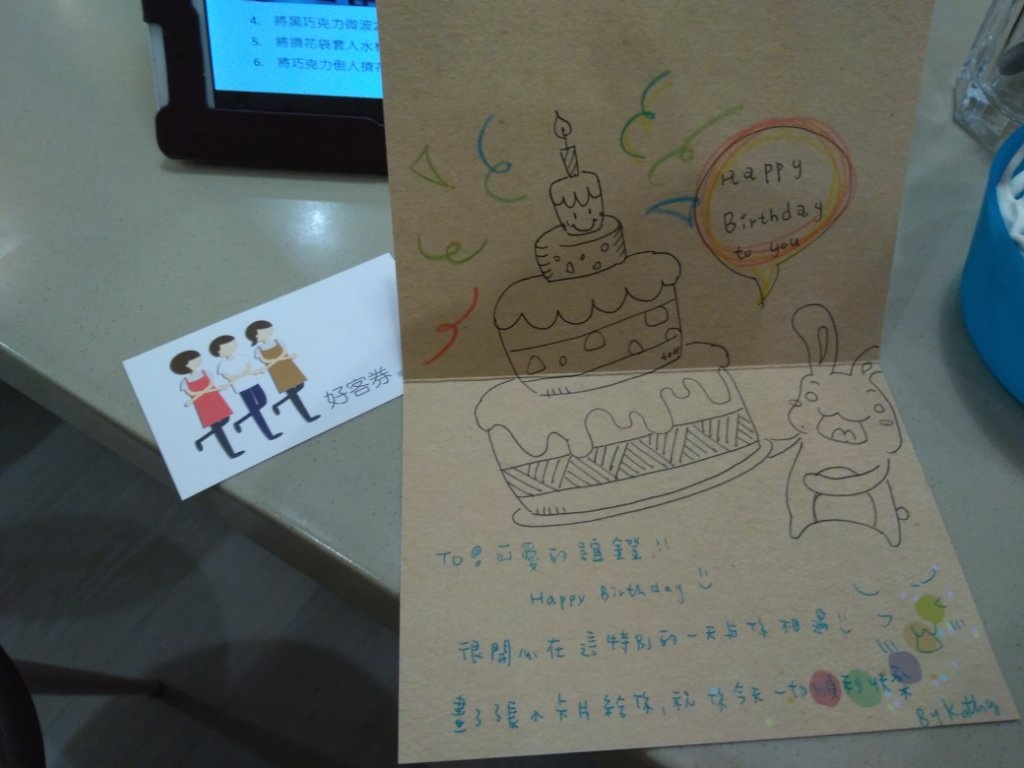 4. 將黑巧克力微波
5. 將擠花袋套入水
6. 將巧克力倒入擠
Happy
Birthday
to you
好客券
TO: 可愛的誼鐙!!
Happy Birthday
很開心在這特別的一天與你相遇!!
畫了張小卡片給你,祝你今天一切順利快樂
By Kathy